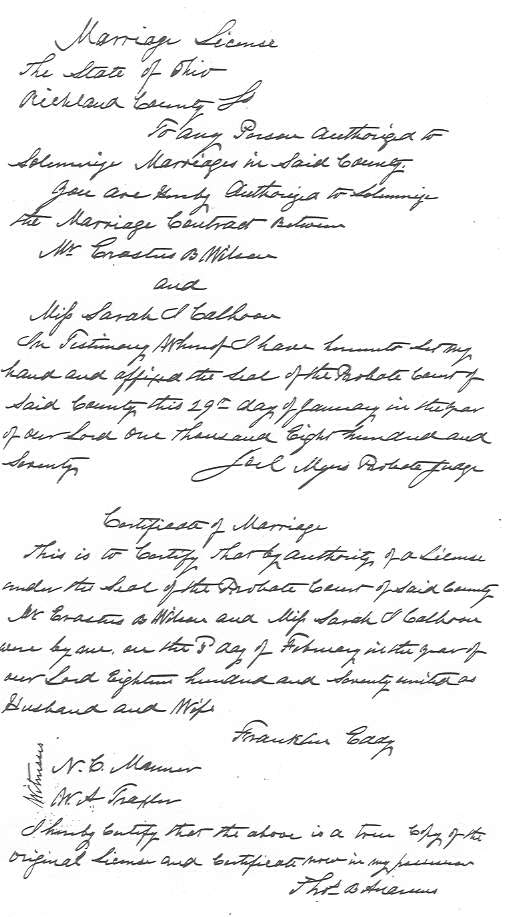 Marriage License
The State of Ohio
Richland County Ss
To any Person Authorized to
Solemnize Marriages in Said County.
You are Hereby Authorized to Solemnize
the Marriage Contract Between
Mr Erastus B Wilson
and
Miss Sarah J Calhoon
In Testimony Whereof I have hereunto Set my
hand and affixed the Seal of the Probate Court of
Said County this 29th day of January in the year
of our Lord One thousand Eight hundred and
Seventy Joel Myers Probate Judge
Certificate of Marriage
This is to Certify that by authority of a License
under the Seal of the Probate Court of Said County
Mr Erastus B Wilson and Miss Sarah J Calhoon
were by me, on the day of February in the year of
our Lord Eighteen hundred and Seventy united as
Husband and Wife
Franklin Eddy
Witnesses
N. C.
W. A
I hereby Certify that the above is a true Copy of the
original License and Certificate now in my possession
Thos B